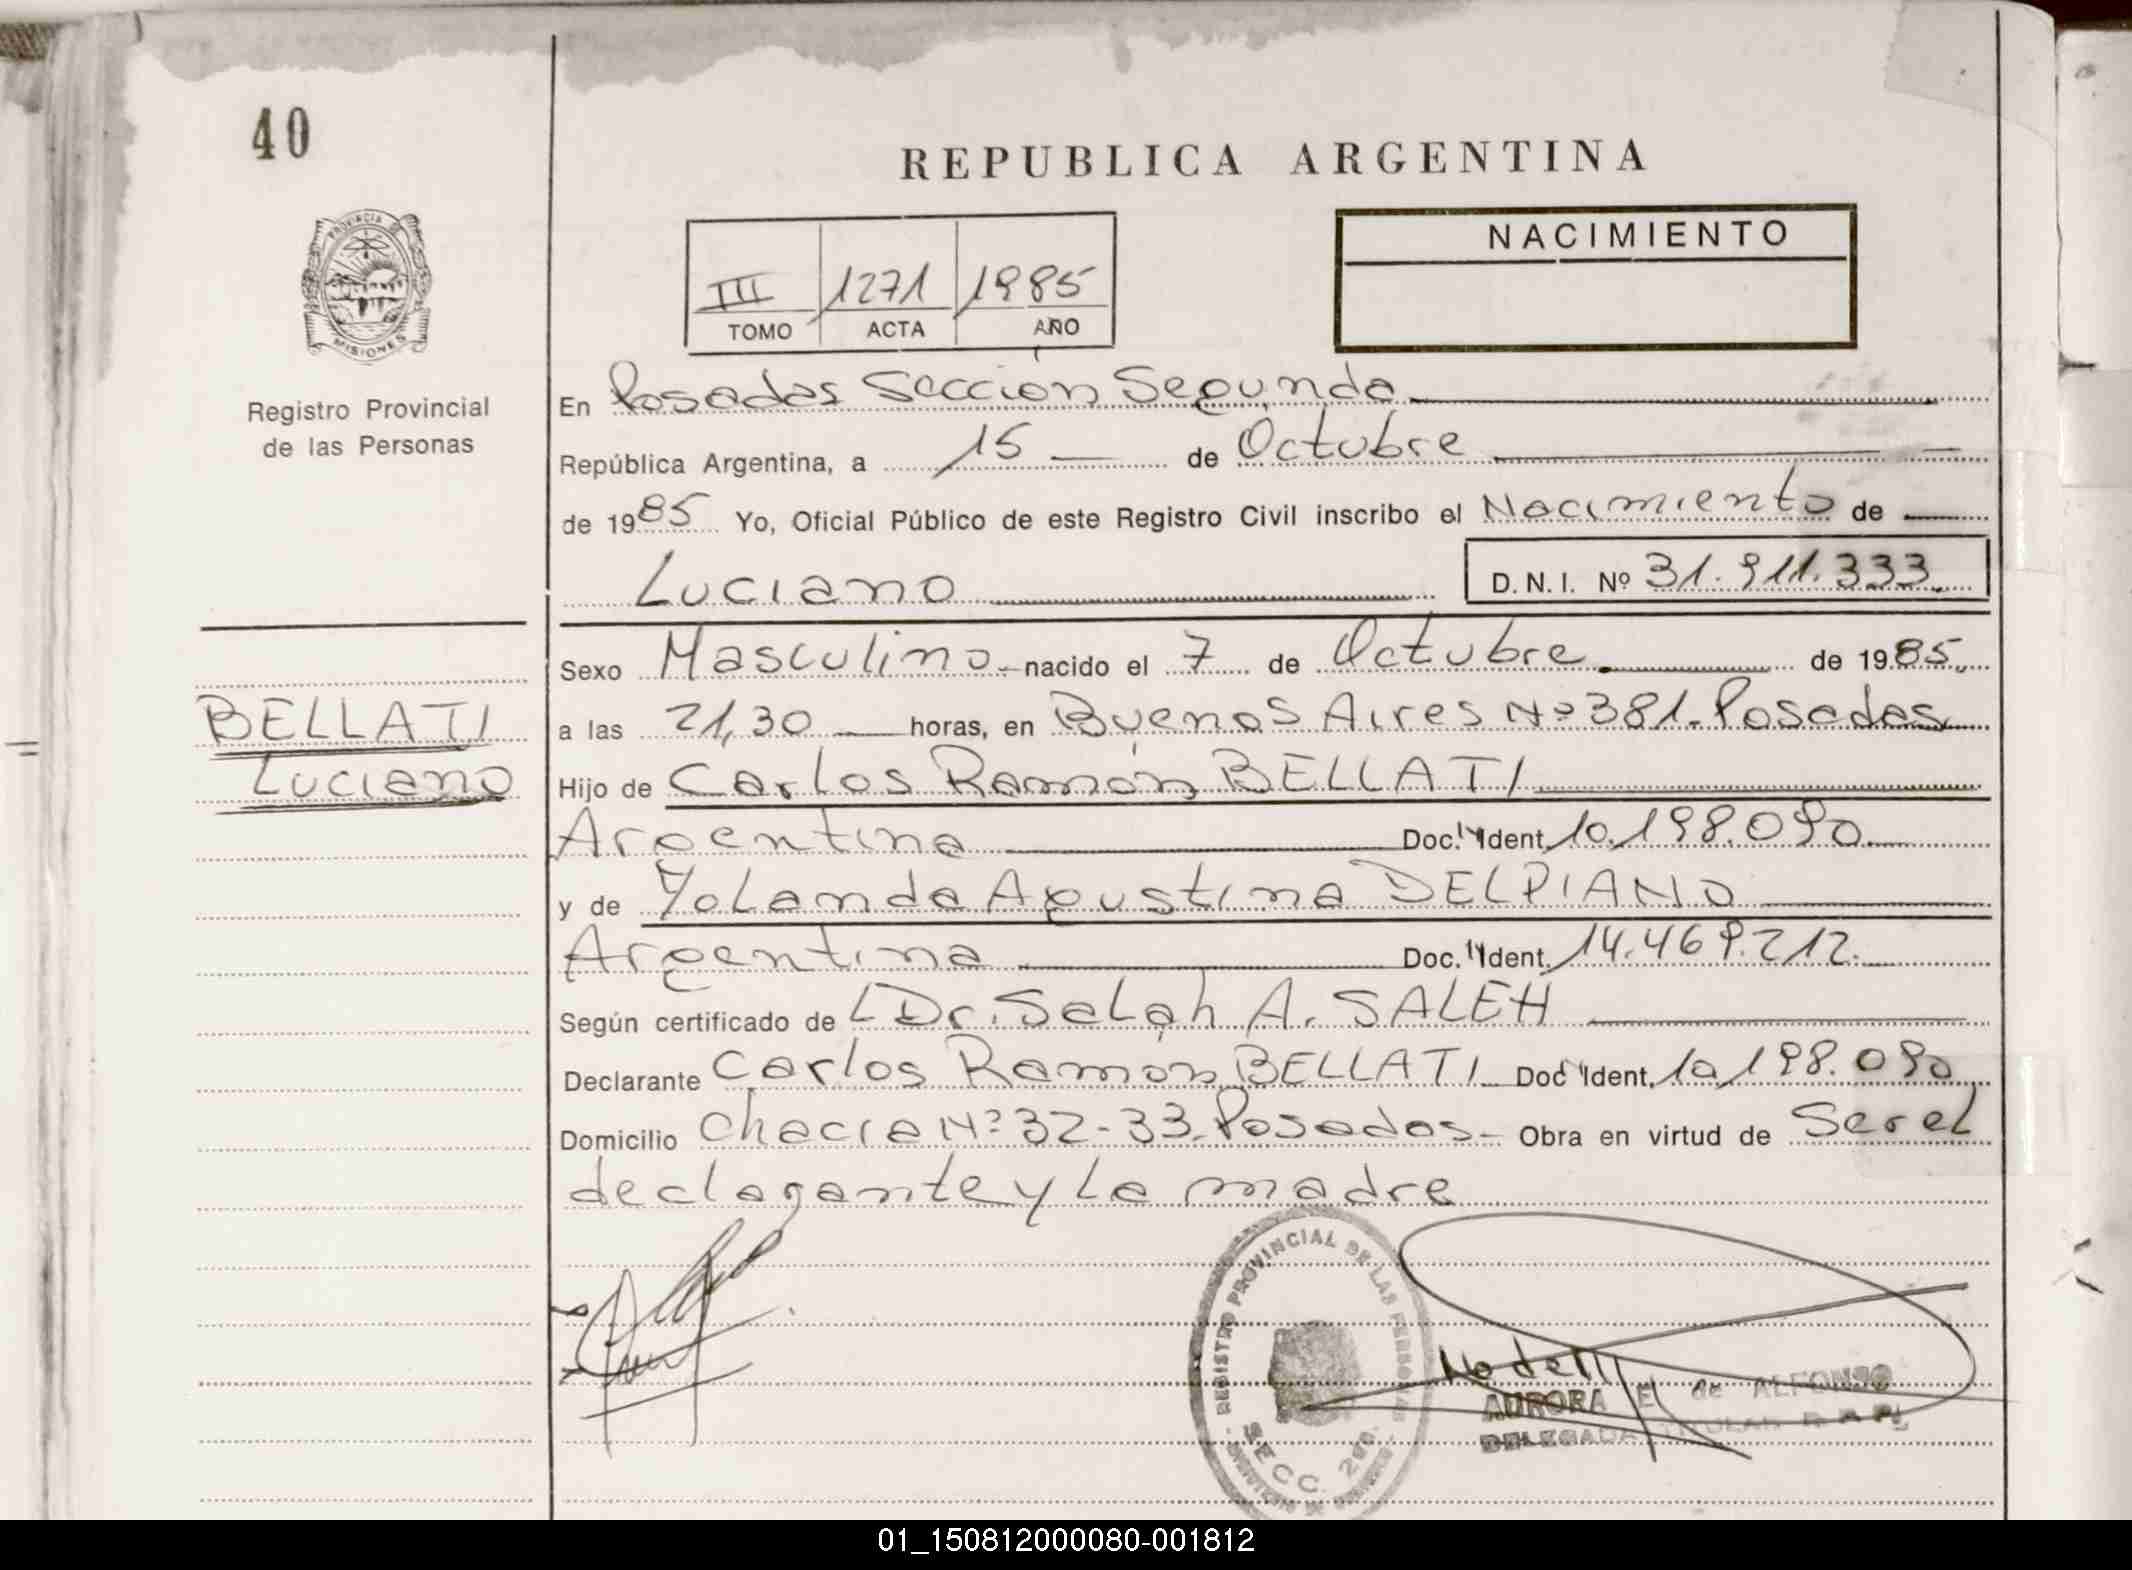 40
REPUBLICA ARGENTINA
PROVINCIA DE
MISIONES
Registro Provincial
de las Personas
III 1271 1985
TOMO ACTA AÑO
NACIMIENTO
En Posadas Sección Segunda
República Argentina, a 15 de Octubre
de 1985 Yo, Oficial Público de este Registro Civil inscribo el Nacimiento de
Luciano D.N.I. Nº 31.911.333
Sexo Masculino nacido el 7 de Octubre de 1985
BELLATI
Luciano
a las 21,30 horas, en Buenos Aires Nº 381. Posadas
Hijo de Carlos Ramón BELLATI
Argentina Doc. Ident. 10.198.090
y de Yolanda Agustina DELPIANO
Argentina Doc. Ident. 14.469.212
Según certificado de Dr. Salah A. SALEH
Declarante Carlos Ramon BELLATI Doc Ident. 10.198.090
Domicilio Chacra Nº 32-33 Posadas - Obra en virtud de Ser el
declarante y la madre
REGISTRO PROVINCIAL DE LAS PERSONAS
SECC. 2da.
AURORA de ALFONSO
DELEGADA TITULAR
01_150812000080-001812